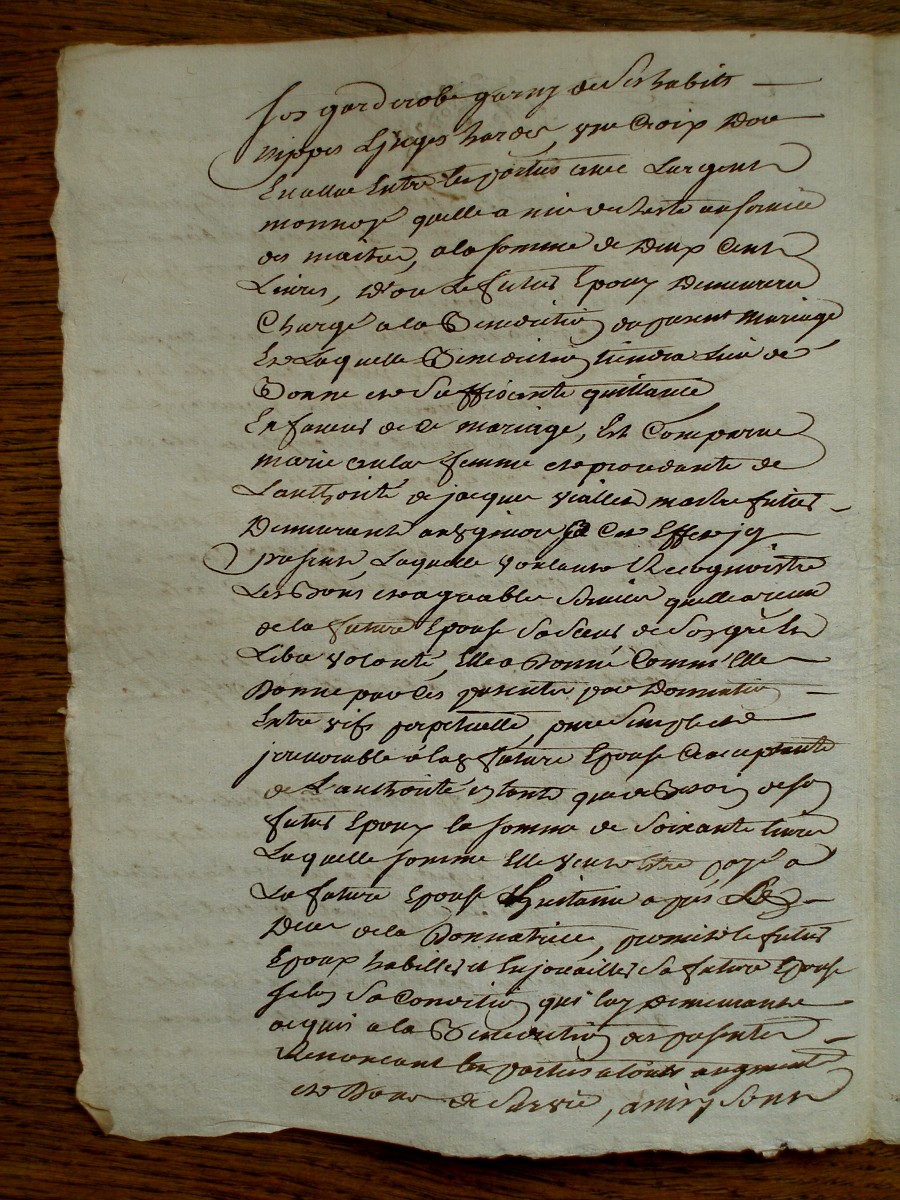 son garderobe garny de Ses habits
nippes Linges hardes, une Croix Dor
Evalue Entre les parties avec Largent
monnoyé quelle a mis de reste au service
des maitres, a la somme de Deux Cent
Livres, D'ou Le futur Epoux Demeurera
Chargé a la Benediction du present mariage
Et Laquelle Benediction tiendra Lieu de
Bonne et Suffisante quittance
En faveur de Ce mariage, Est Comparue
marie femme et procedante de
L'authorité de jacques viallet
Demeurant au En Effet jcy
presente, Laquelle voulant Recognoistre
Les Bons et agreables Services quelle a reçu
de la future Epouse Sa Sœur de Son gré et
Libre volonté, Elle a Donné Comm'Elle
Donne par Ces presentes par Donnation
Entre vifs perpetuelle, pure Simple et
jrrevocable a la future Epouse acceptante
de L'authorité que de Besoin de Son
futur Epoux la somme de Soixante livres
Laquelle somme Elle veut Estre payé a
La future Epouse apres Le
Deces de la Donnatrice, promis le futur
Epoux habiller et Enjouailler Sa future Epouse
selon Sa Condition qui luy Demeurant
acquis a la Benediction des presentes
Renonceant les parties a touts augment
et Dons de Survie, ainsy Sont